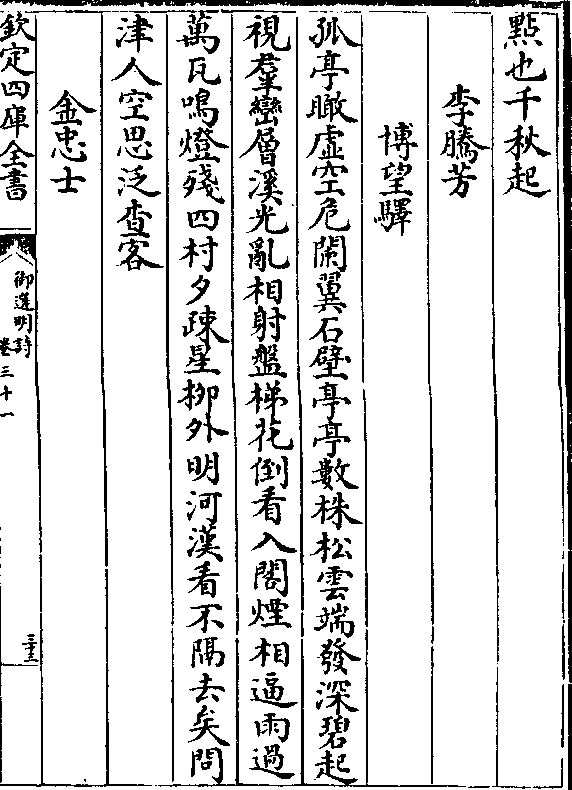 點也千秋起
李騰芳
博望驛
孤亭瞰虛空危闌翼石壁亭亭數株松雲端發深碧起
視羣巒層溪光亂相射盤梯花倒看入閣煙相逼雨過
萬瓦鳴燈殘四村夕疎星栁外明河漢看不隔去矣問
津人空思泛查客
金忠士
欽定四庫全書
御選明詩
卷三十一
三十三